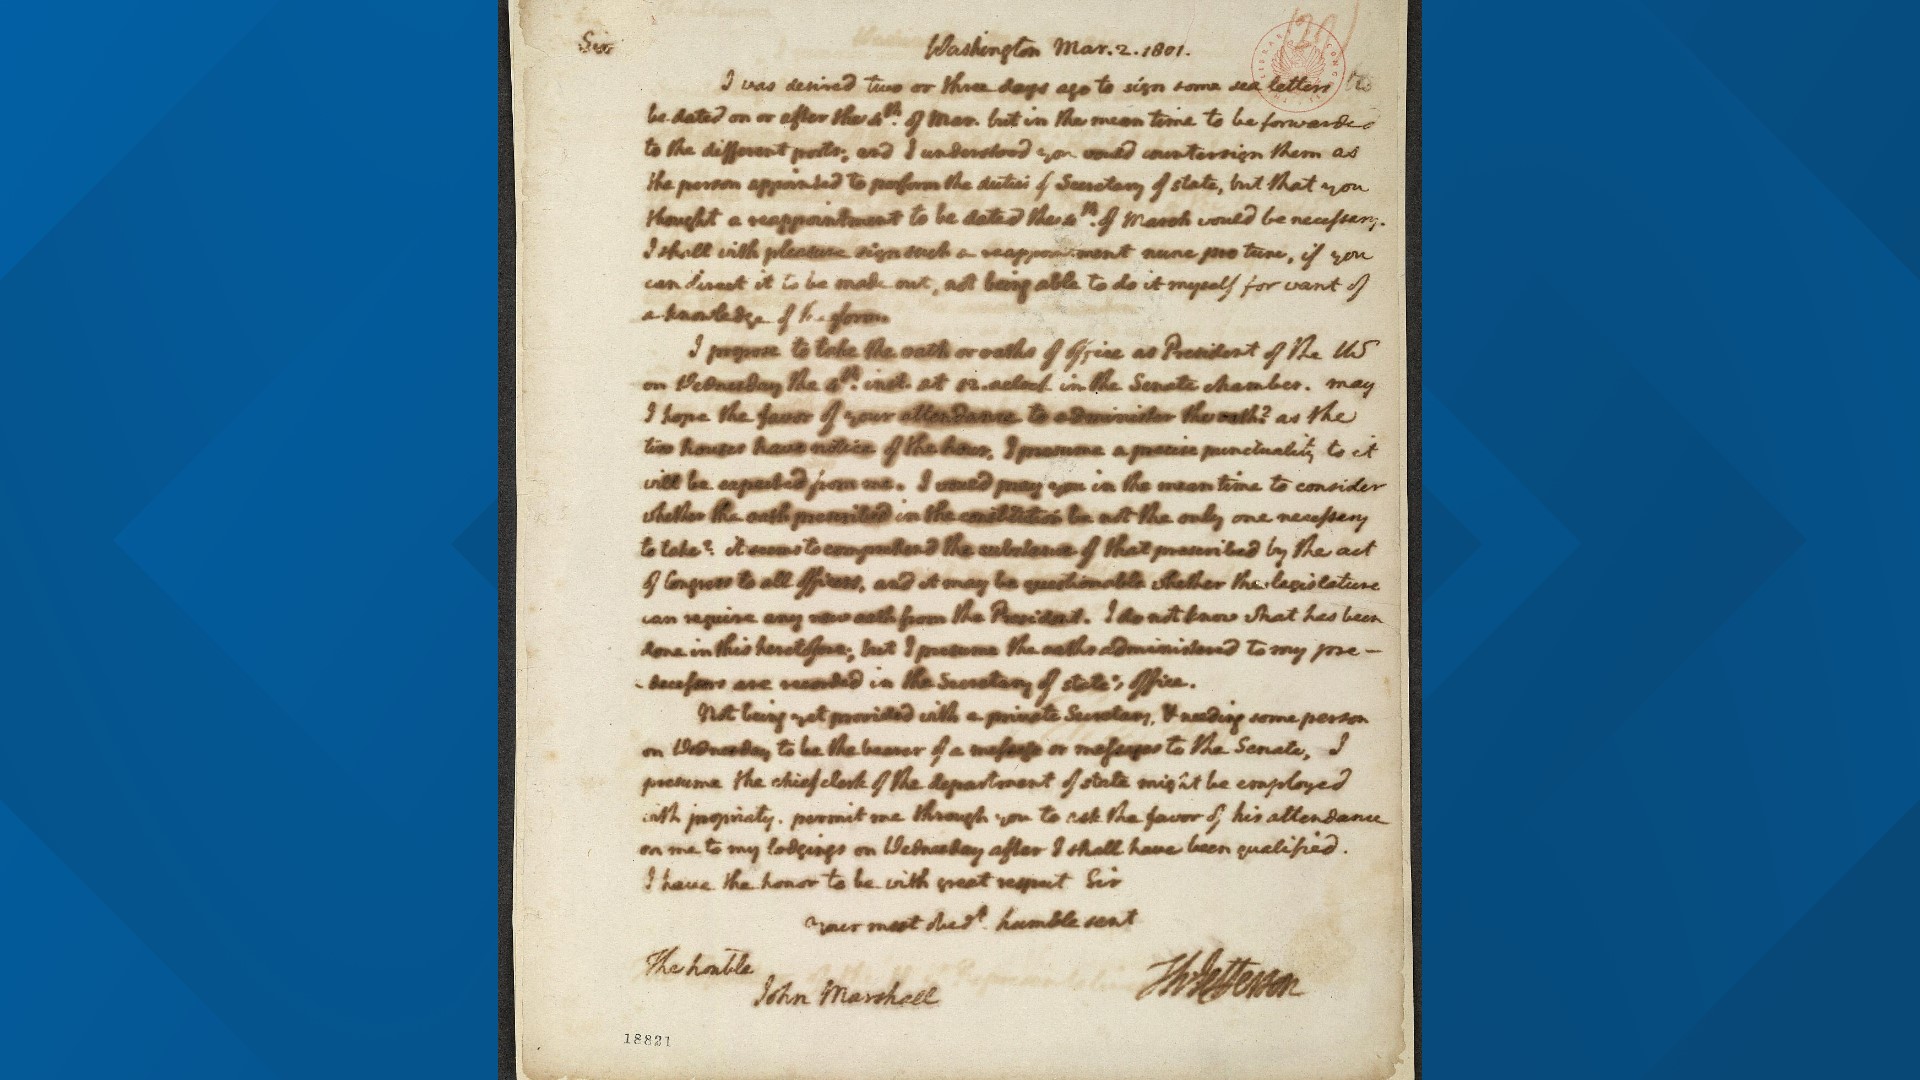 Sir
Washington Mar. 2. 1801.
I was desired two or three days ago to sign some sea letters to
be dated on or after the 4th. of Mar. but in the mean time to be forwarded
to the different ports, and I understood you would countersign them as
the person appointed to perform the duties of Secretary of state, but that you
thought a reappointment to be dated the 4th. of March would be necessary.
I shall with pleasure sign such a reappointment nunc pro tunc, if you
can direct it to be made out, not being able to do it myself for want of
a knowledge of the form.
I propose to take the oath or oaths of office as President of the US
on Wednesday the 4th. inst. at 12. aclock in the Senate chamber. may
I hope the favor of your attendance to administer the oath? as the
two houses have notice of the hour, I presume a precise punctuality to it
will be expected from me. I would pray you in the mean time to consider
whether the oath prescribed in the constitution be not the only one necessary
to take? it seems to comprehend the substance of that prescribed by the act
of Congress to all officers, and it may be questionable whether the legislature
can require any new oath from the President. I do not know what has been
done in this heretofore; but I presume the oaths administered to my pre-
-decessors are recorded in the Secretary of state's office.
Not being yet provided with a private Secretary, & needing some person
on Wednesday to be the bearer of a message or messages to the Senate, I
presume the chief clerk of the department of state might be employed
with propriety. permit me through you to ask the favor of his attendance
on me to my lodgings on Wednesday after I shall have been qualified.
I have the honor to be with great respect Sir
your most obedt. humble servt
The honble
John Marshall
Th: Jefferson
18821